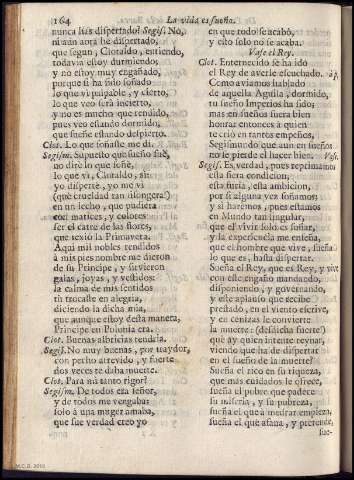 164 La vida es sueño.
nunca has dispertado? Segis. No,
ni aun aora he dispertado,
que segun, Clotaldo, entiendo,
todavia estoy durmiendo;
y no estoy muy engañado,
porque si ha sido soñado
lo que vi palpable, y cierto,
lo que veo serà incierto,
y no es mucho que rendido,
pues veo estando dormido,
que sueñe estando despierto.
Clot. Lo que soñaste me di.
Segism. Supuesto que sueño fuè,
no dirè lo que soñè,
lo que vi, Clotaldo, si:
yo dispertè, y yo me vi
(què crueldad tan lisongera!)
en un lecho, que pudiera
con matices, y colores
ser el catre de las flores,
que texiò la Primavera.
Aqui mil nobles rendidos
à mis pies nombre me dieron
de su Principe, y sirvieron
galas, joyas, y vestidos:
la calma de mis sentidos
tù trocaste en alegria,
diciendo la dicha mia,
que aunque estoy desta manera,
Principe en Polonia era.
Clot. Buenas albricias tendria.
Segis. No muy buenas, por traydor,
con pecho atrevido, y fuerte
dos veces te daba muerte.
Clot. Para mì tanto rigor?
Segism. De todos era señor,
y de todos me vengaba:
solo à una muger amaba,
que fue verdad creo yo
en que todo se acabò,
y esto solo no se acaba.
Vase el Rey.
Clot. Enternecido se ha ido
el Rey de averle escuchado. ap.
Como aviamos hablado
de aquella Aguila, dormido,
tu sueño Imperios ha sido;
mas en sueños fuera bien
honrar entonces à quien
te criò en tantos empeños,
Segismundo que aun en sueños
no se pierde el hacer bien. Vase.
Segis. Es verdad, pues reprimamos
esta fiera condicion,
esta furia, esta ambicion,
por si alguna vez soñamos:
y si haremos, pues estamos
en Mundo tan singular,
que el vivir solo es soñar,
y la experiencia me enseña,
que el hombre que vive sueña
lo que es, hasta dispertar.
Sueña el Rey, que es Rey, y vive
con este engaño mandando,
disponiendo, y governando,
y este aplauso que recibe
prestado, en el viento escrive,
y en cenizas le convierte
la muerte: (desdicha fuerte!)
que ay quien intente reynar,
viendo que ha de dispertar
en el sueño de la muerte?
Sueña el rico en su riqueza,
que mas cuidados le ofrece,
sueña el pobre que padece
su miseria, y su pobreza,
sueña el que à medrar empieza,
sueña el que afana, y pretende,
sue-